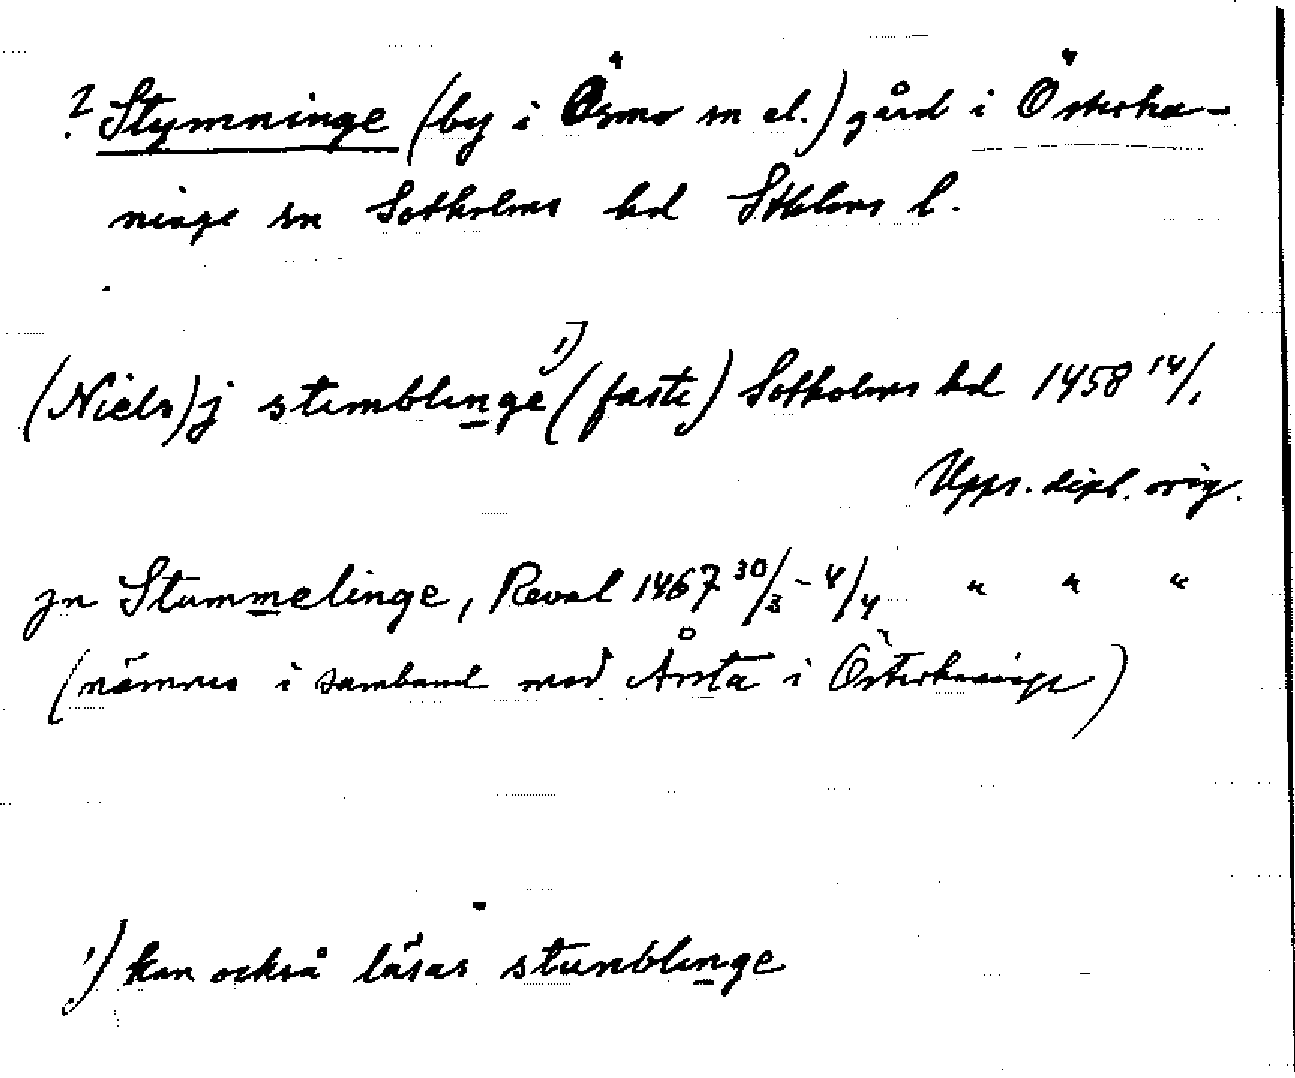 ? Stymninge (by i Ösmo sn el.) gård i Österha-
ninge sn Sotholms hd Sthlms l.
(Niels) j stimblinge 1) (faste) Sotholms hd 1458 14/1
Upps. dipl. orig.
jn Stummelinge, Reval 1467 30/3 - 4/4 " " "
(nämnes i samband med Årsta i Österhaninge)
1) kan också läsas stunblinge